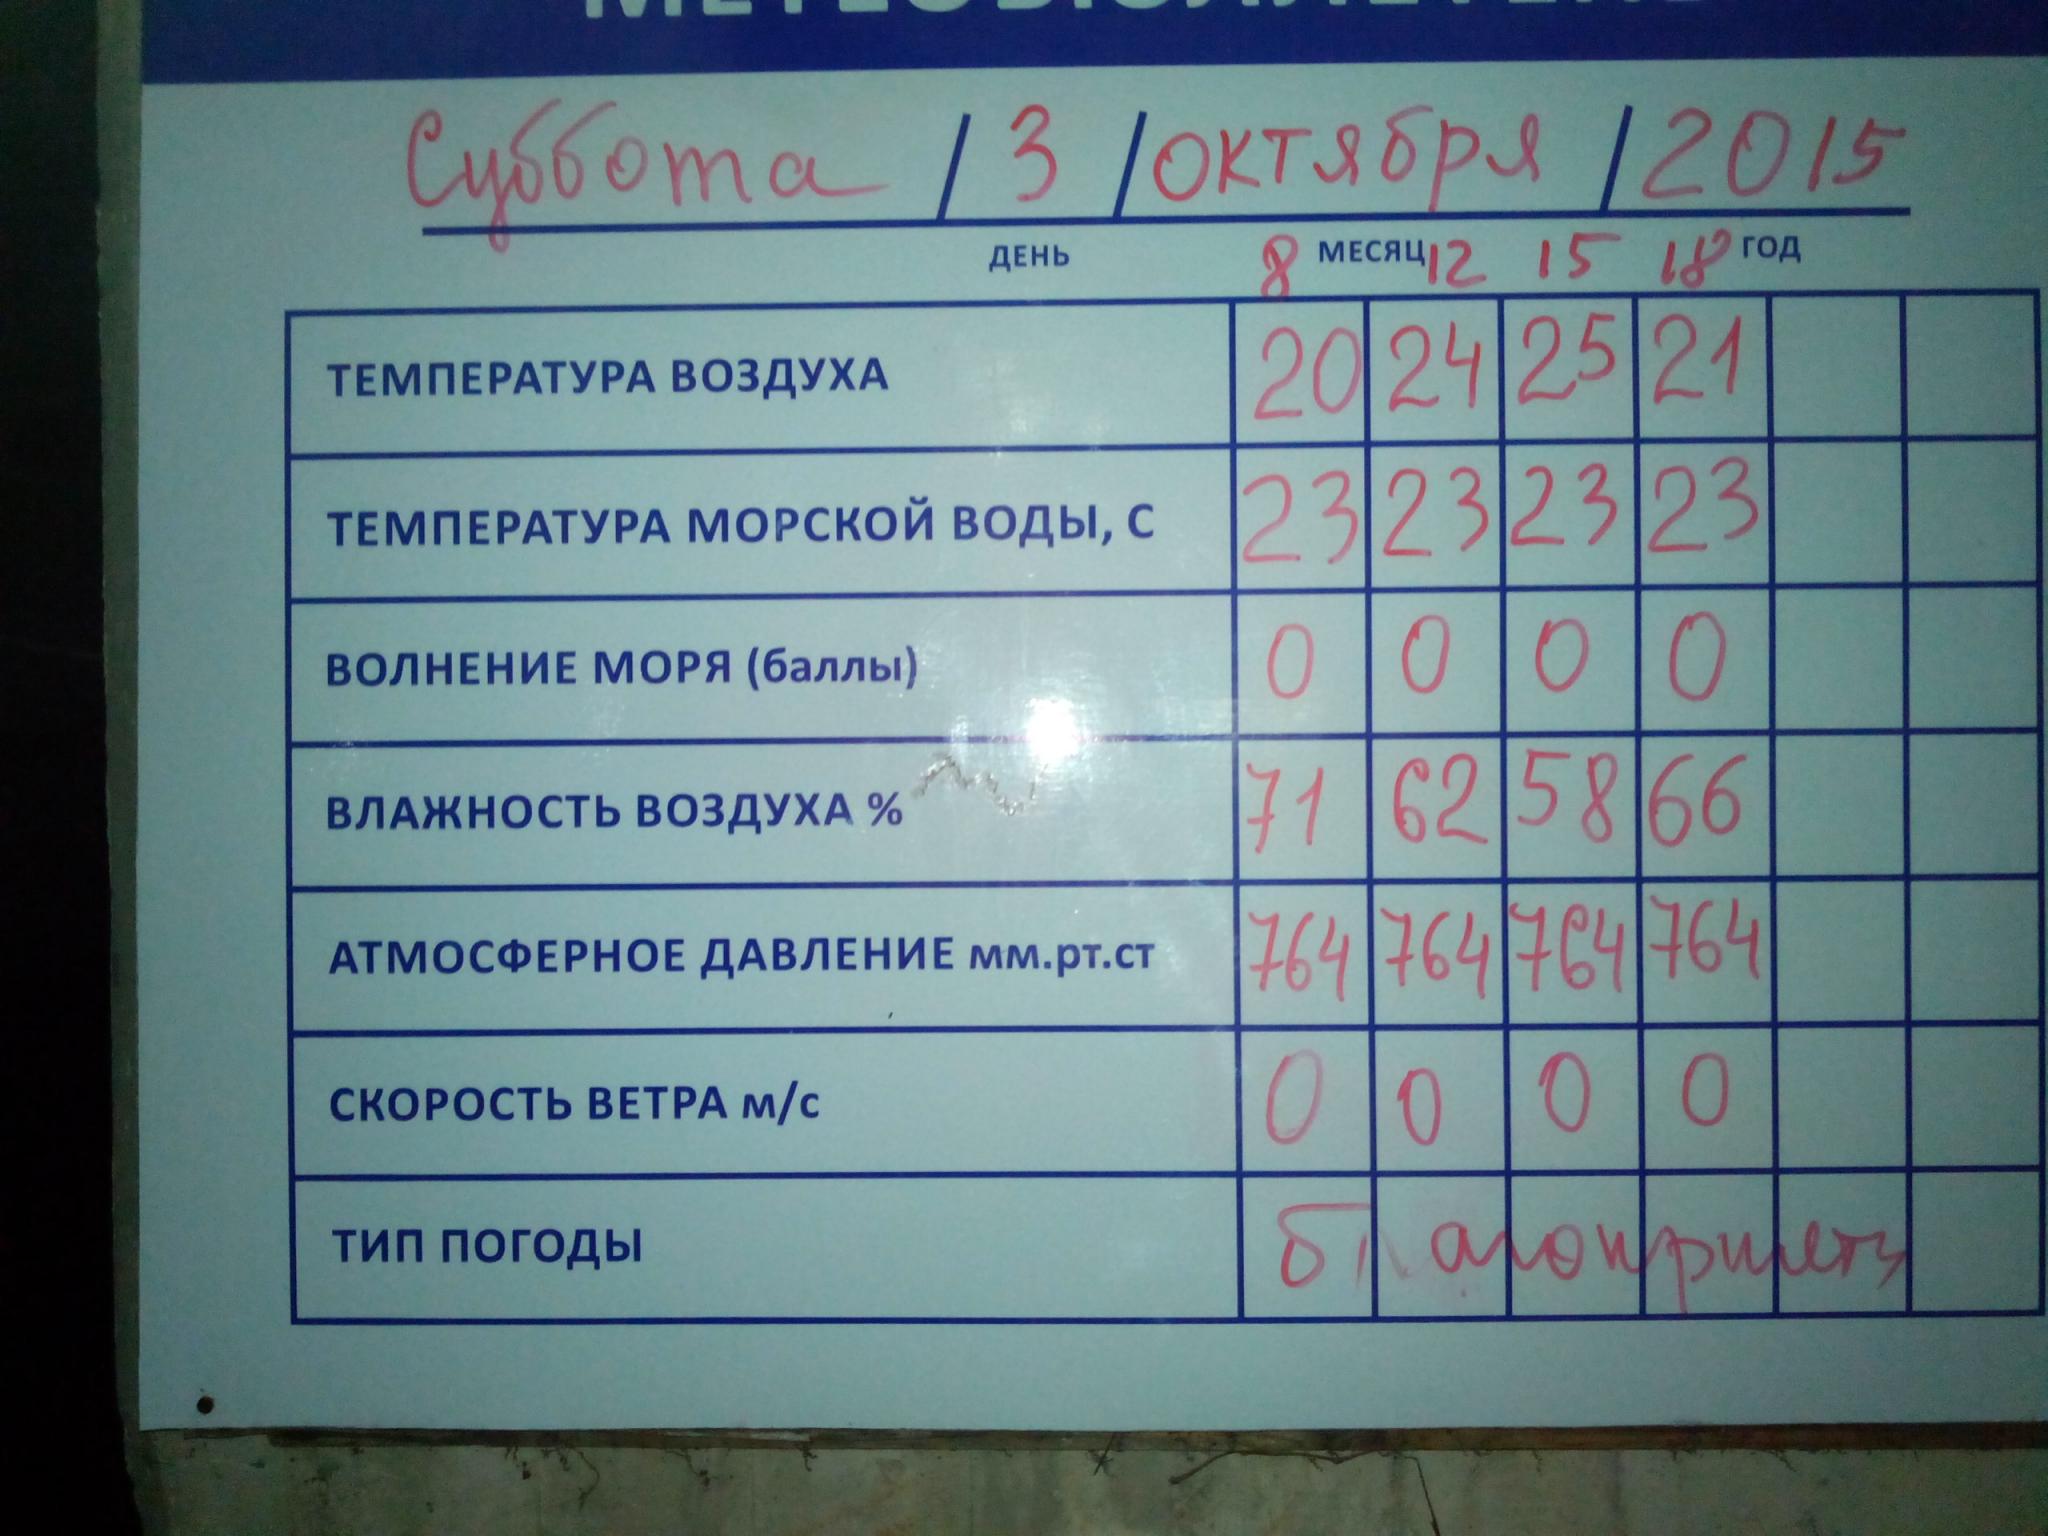 МЕТЕОБЮЛЛЕТЕНЬ
Суббота / 3 / октября / 2015
ДЕНЬ МЕСЯЦ ГОД
8 12 15 18
ТЕМПЕРАТУРА ВОЗДУХА 20 24 25 21
ТЕМПЕРАТУРА МОРСКОЙ ВОДЫ, С 23 23 23 23
ВОЛНЕНИЕ МОРЯ (баллы) 0 0 0 0
ВЛАЖНОСТЬ ВОЗДУХА % 71 62 58 66
АТМОСФЕРНОЕ ДАВЛЕНИЕ мм.рт.ст 764 764 764 764
СКОРОСТЬ ВЕТРА м/с 0 0 0 0
ТИП ПОГОДЫ